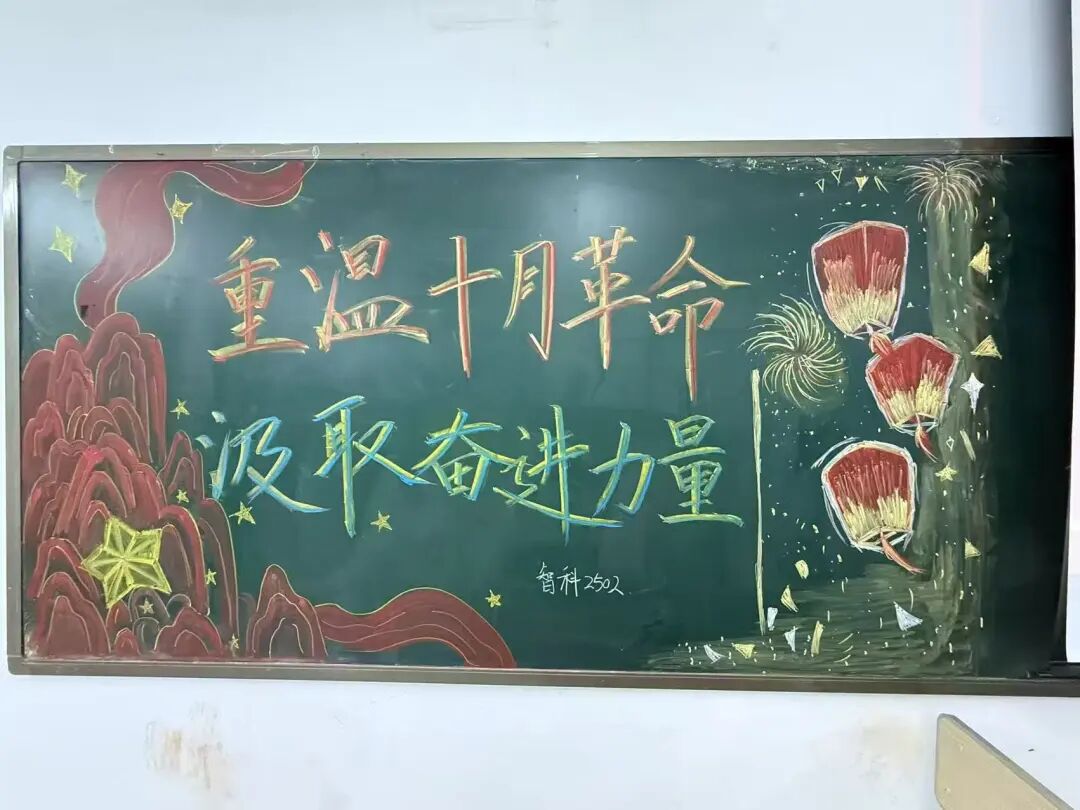 重温十月革命
汲取奋进力量
智科2502